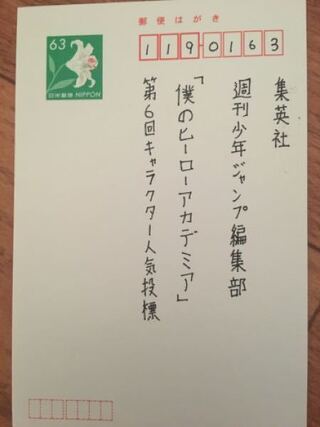 郵便はがき
63
日本郵便 NIPPON
1190163
集英社
週刊少年ジャンプ編集部
「僕のヒーローアカデミア」
第6回キャラクター人気投標